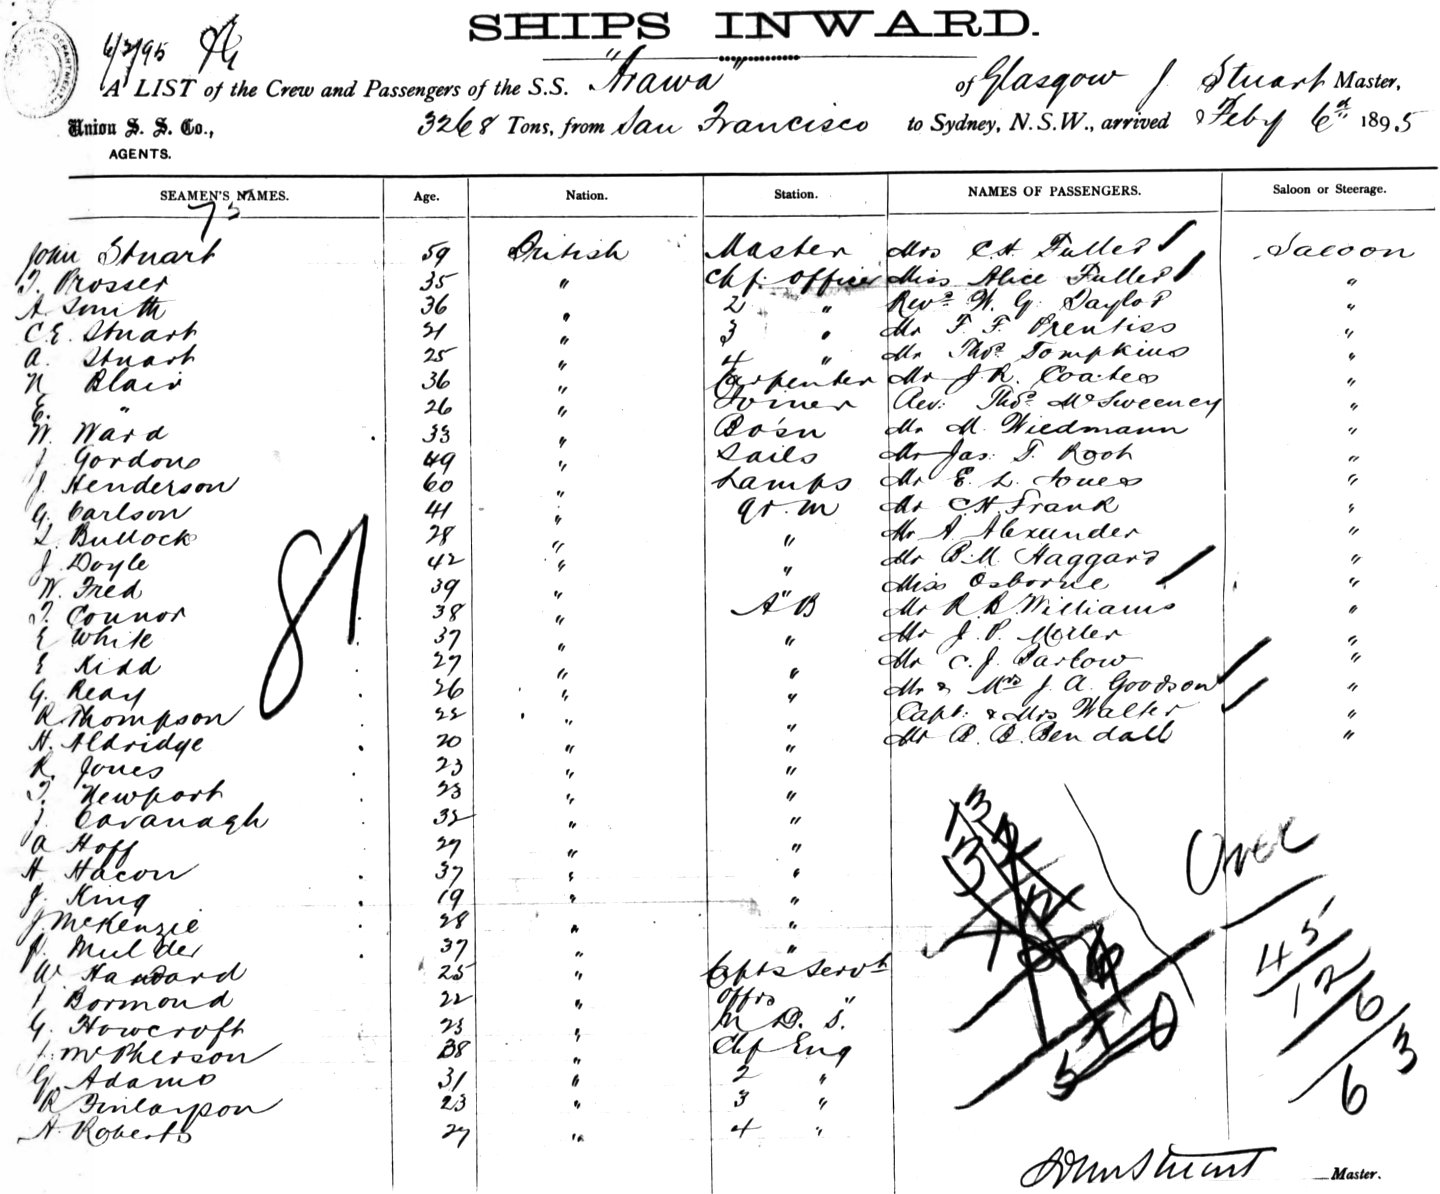 SHIPS INWARD.
6/2/95
A LIST of the Crew and Passengers of the S.S. "Arawa" of Glasgow J Stuart Master,
Union S. S. Co., 3268 Tons, from San Francisco to Sydney, N.S.W., arrived Feby 6th 1895
AGENTS.
SEAMEN'S NAMES. Age. Nation. Station. NAMES OF PASSENGERS. Saloon or Steerage.
75
John Stuart 59 British Master Mrs C. H. Fuller Saloon
T. Prosser 35 " Chf. Officer Miss Alice Fuller "
A Smith 36 " 2 " Revd W. G. Taylor "
C.E. Stuart 21 " 3 " Mr F. F. Prentiss "
A. Stuart 25 " 4 " Mr Thos Tompkins "
N Blair 36 " Carpenter Mr J. R. Coates "
E. " 26 " Joiner Rev: Thos McSweeney "
W. Ward 33 " Bo'sn Mr M. Wiedmann "
J Gordon 49 " Sails Mr Jas. T. Root "
J. Henderson 60 " Lamps Mr E. L. Jones "
G. Carlson 41 " Qr. M Mr C H Frank "
Bullock 28 " " Mr A Alexander "
J. Doyle 42 " " Mr B. M. Haggard "
W. Fred 39 " Miss Osborne "
T. Connor 38 " A"B Mr R. B. Williams "
E White 37 " " Mr J. P. Miller "
E Kidd 27 " " Mr C. J. Barlow "
G. Reay 26 " " Mr & Mrs J. A. Goodson "
R Thompson 22 " " Capt: & Mrs Walker "
H. Aldridge 20 " " Mr B. B. Bendall "
R. Jones 23 " "
T. Newport 23 " "
Cavanagh 32 " "
A Hoff 27 " "
H Hacon 37 " "
J. King 19 " "
J. McKenzie 28 " "
Mulder 37 " "
W. Haward 25 " Capts Servt
Bormond 22 " Offrs "
G. Howcroft 23 " M D. S.
McPherson 38 " Chf Eng
G Adams 31 " 2 "
R Finlayson 23 " 3 "
A. Roberts 27 " 4 "
81
Over
45
12
6
63
John Stuart Master.